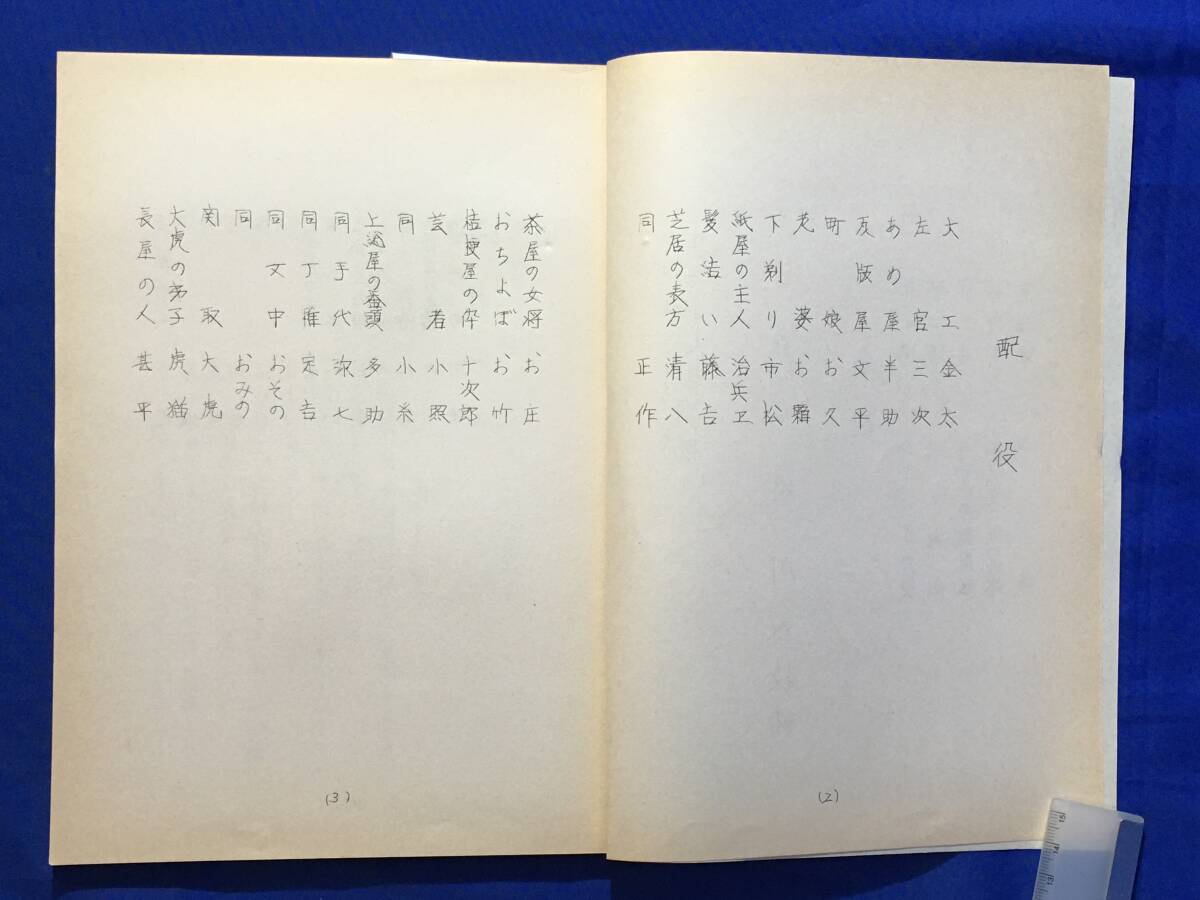 配役
大工 金太
左官 三次
あめ屋 半助
瓦版屋 文平
町娘 お久
老婆 お霜
下剃り 市松
紙屋の主人 治兵ヱ
髪結い 藤吉
芝居の表方 清八
同 正作
(2)
茶屋の女将 お庄
おちよぼ お竹
桔梗屋の伜 十次郎
芸者 小照
同 小糸
上総屋の番頭 多助
同手代 弥七
同丁稚 定吉
同女中 おその
同 おみの
関取 大虎
大虎の弟子 虎猫
長屋の人 甚平
(3)
15
14
13